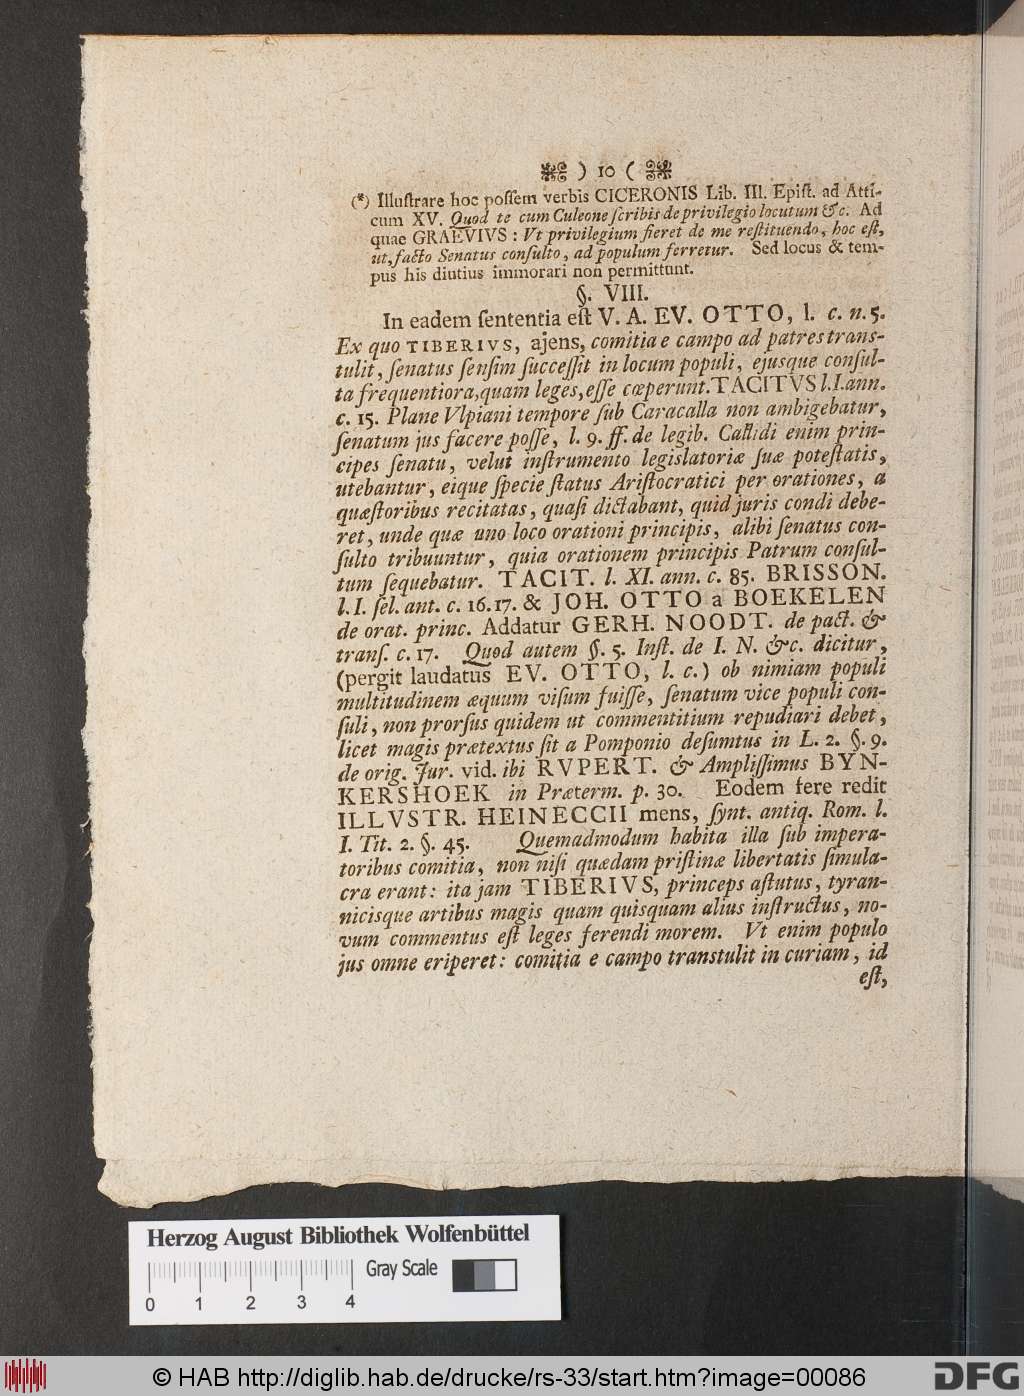 ) 10 (
(*) Illuſtrare hoc poſſem verbis CICERONIS Lib. III. Epiſt. ad Atti-
cum XV. Quod te cum Culeone ſcribis de privilegio locutum &c. Ad
quae GRAEVIVS: Vt privilegium fieret de me reſtituendo, hoc eſt,
ut, facto Senatus conſulto, ad populum ferretur. Sed locus & tem-
pus his diutius immorari non permittunt.
§. VIII.
In eadem ſententia eſt V. A. EV. OTTO, l. c. n. 5.
Ex quo TIBERIVS, ajens, comitia e campo ad patres trans-
tulit, ſenatus ſenſim ſucceſſit in locum populi, ejusque conſul-
ta frequentiora, quam leges, eſſe cœperunt. TACITVS l. I. ann.
c. 15. Plane Vlpiani tempore ſub Caracalla non ambigebatur,
ſenatum jus facere poſſe, l. 9. ff. de legib. Callidi enim prin-
cipes ſenatu, velut inſtrumento legislatoriæ ſuæ poteſtatis,
utebantur, eique ſpecie ſtatus Ariſtocratici per orationes, a
quæſtoribus recitatas, quaſi dictabant, quid juris condi debe-
ret, unde quæ uno loco orationi principis, alibi ſenatus con-
ſulto tribuuntur, quia orationem principis Patrum conſul-
tum ſequebatur. TACIT. l. XI. ann. c. 85. BRISSON.
l. I. ſel. ant. c. 16. 17. & JOH. OTTO a BOEKELEN
de orat. princ. Addatur GERH. NOODT. de pact. &
tranſ. c. 17. Quod autem §. 5. Inſt. de I. N. &c. dicitur,
(pergit laudatus EV. OTTO, l. c.) ob nimiam populi
multitudinem æquum viſum fuiſſe, ſenatum vice populi con-
ſuli, non prorſus quidem ut commentitium repudiari debet,
licet magis prætextus ſit a Pomponio deſumtus in L. 2. §. 9.
de orig. Jur. vid. ibi RVPERT. & Ampliſſimus BYN-
KERSHOEK in Præterm. p. 30. Eodem fere redit
ILLVSTR. HEINECCII mens, ſynt. antiq. Rom. l.
I. Tit. 2. §. 45. Quemadmodum habita illa ſub impera-
toribus comitia, non niſi quædam priſtinæ libertatis ſimula-
cra erant: ita jam TIBERIVS, princeps aſtutus, tyran-
nicisque artibus magis quam quisquam alius inſtructus, no-
vum commentus eſt leges ferendi morem. Vt enim populo
jus omne eriperet: comitia e campo transtulit in curiam, id
eſt,
Herzog August Bibliothek Wolfenbüttel
Gray Scale
0 1 2 3 4
© HAB http://diglib.hab.de/drucke/rs-33/start.htm?image=00086
DFG